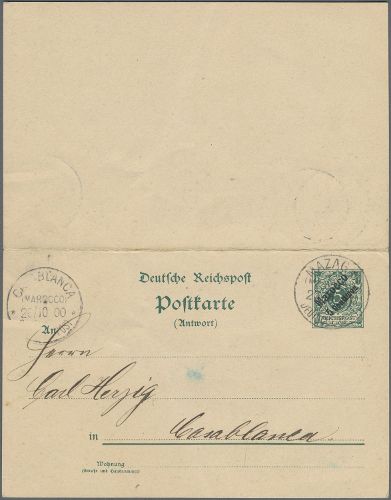 Deutsche Reichspost
Postkarte
(Antwort)
CASABLANCA
MAROCCO
20/10 00
MAZAG
Marocco
5 Centimos
REICHSPOST
An
Herrn
Carl Herzig
in Casablanca
Wohnung
(Straße und Hausnummer)